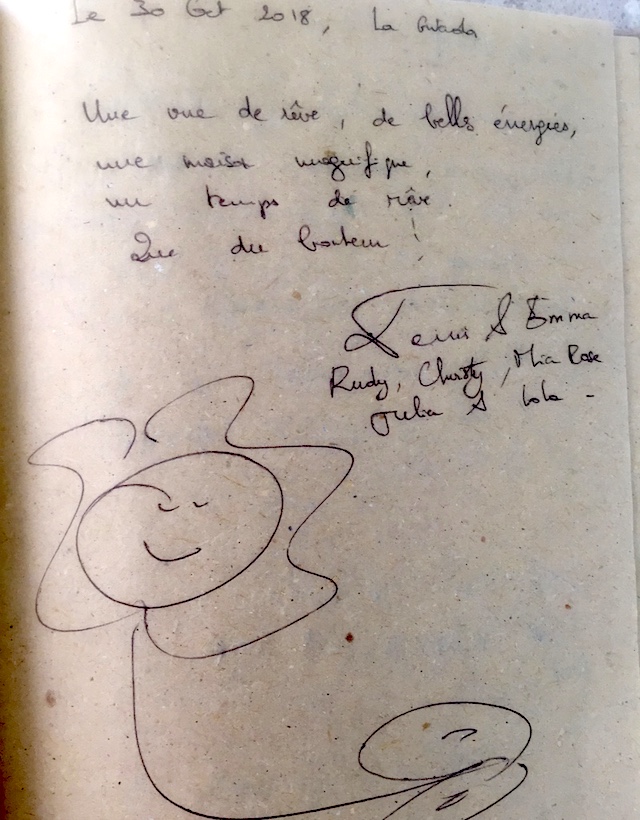 Le 30 Oct 2018, La Gwada
Une vue de rêve, de belles énergies,
une maison magnifique,
un temps de rêve.
Que du bonheur !
& Emma
Rudy, Christy, Mia Rose
Julia & Lola -